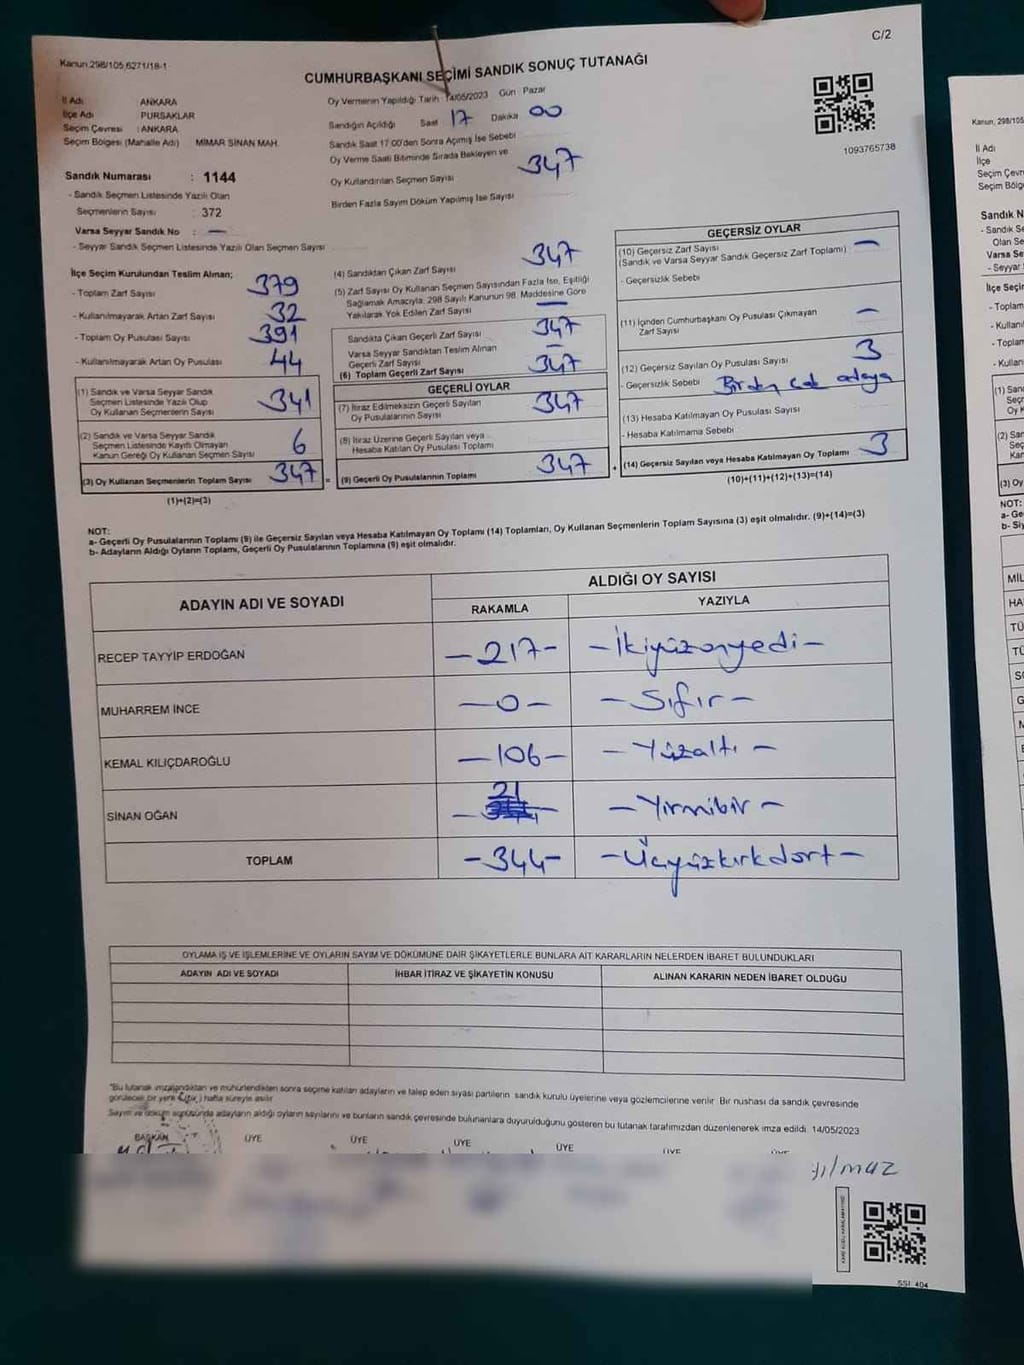 C/2
Kanun 298/105,6271/18-1
CUMHURBAŞKANI SEÇİMİ SANDIK SONUÇ TUTANAĞI
İl Adı ANKARA
İlçe Adı PURSAKLAR
Seçim Çevresi : ANKARA
Seçim Bölgesi (Mahalle Adı) MİMAR SİNAN MAH.
Oy Vermenin Yapıldığı Tarih 14/05/2023 Gün Pazar
Sandığın Açıldığı Saat 17 Dakika 00
Sandık Saat 17.00'den Sonra Açılmış İse Sebebi
Oy Verme Saati Bitiminde Sırada Bekleyen ve
Oy Kullandırılan Seçmen Sayısı 347
Birden Fazla Sayım Döküm Yapılmış İse Sayısı
1093765738
Sandık Numarası : 1144
- Sandık Seçmen Listesinde Yazılı Olan
Seçmenlerin Sayısı 372
Varsa Seyyar Sandık No : —
- Seyyar Sandık Seçmen Listesinde Yazılı Olan Seçmen Sayısı
İlçe Seçim Kurulundan Teslim Alınan;
- Toplam Zarf Sayısı 379
- Kullanılmayarak Artan Zarf Sayısı 32
- Toplam Oy Pusulası Sayısı 391
- Kullanılmayarak Artan Oy Pusulası 44
(1) Sandık ve Varsa Seyyar Sandık
Seçmen Listesinde Yazılı Olup
Oy Kullanan Seçmenlerin Sayısı 341
(2) Sandık ve Varsa Seyyar Sandık
Seçmen Listesinde Kayıtlı Olmayan
Kanun Gereği Oy Kullanan Seçmen Sayısı 6
(3) Oy Kullanan Seçmenlerin Toplam Sayısı 347 =
(1)+(2)=(3)
(4) Sandıktan Çıkan Zarf Sayısı 347
(5) Zarf Sayısı Oy Kullanan Seçmen Sayısından Fazla İse, Eşitliği
Sağlamak Amacıyla, 298 Sayılı Kanunun 98. Maddesine Göre
Yakılarak Yok Edilen Zarf Sayısı —
Sandıkta Çıkan Geçerli Zarf Sayısı 347
Varsa Seyyar Sandıktan Teslim Alınan
Geçerli Zarf Sayısı —
(6) Toplam Geçerli Zarf Sayısı 347
GEÇERLİ OYLAR
(7) İtiraz Edilmeksizin Geçerli Sayılan
Oy Pusulalarının Sayısı 347
(8) İtiraz Üzerine Geçerli Sayılan veya
Hesaba Katılan Oy Pusulası Toplamı
(9) Geçerli Oy Pusulalarının Toplamı 347 +
GEÇERSİZ OYLAR
(10) Geçersiz Zarf Sayısı
(Sandık ve Varsa Seyyar Sandık Geçersiz Zarf Toplamı) —
- Geçersizlik Sebebi
(11) İçinden Cumhurbaşkanı Oy Pusulası Çıkmayan
Zarf Sayısı —
(12) Geçersiz Sayılan Oy Pusulası Sayısı 3
- Geçersizlik Sebebi Birden çok adaya
(13) Hesaba Katılmayan Oy Pusulası Sayısı
- Hesaba Katılmama Sebebi
(14) Geçersiz Sayılan veya Hesaba Katılmayan Oy Toplamı 3
(10)+(11)+(12)+(13)=(14)
NOT:
a- Geçerli Oy Pusulalarının Toplamı (9) ile Geçersiz Sayılan veya Hesaba Katılmayan Oy Toplamı (14) Toplamları, Oy Kullanan Seçmenlerin Toplam Sayısına (3) eşit olmalıdır. (9)+(14)=(3)
b- Adayların Aldığı Oyların Toplamı, Geçerli Oy Pusulalarının Toplamına (9) eşit olmalıdır.
ADAYIN ADI VE SOYADI ALDIĞI OY SAYISI
RAKAMLA YAZIYLA
RECEP TAYYİP ERDOĞAN -217- -İkiyüzonyedi-
MUHARREM İNCE -0- -Sıfır-
KEMAL KILIÇDAROĞLU -106- -Yüzaltı-
SİNAN OĞAN 21 -Yirmibir-
TOPLAM -344- -Üçyüzkırkdört-
OYLAMA İŞ VE İŞLEMLERİNE VE OYLARIN SAYIM VE DÖKÜMÜNE DAİR ŞİKAYETLERLE BUNLARA AİT KARARLARIN NELERDEN İBARET BULUNDUKLARI
ADAYIN ADI VE SOYADI İHBAR İTİRAZ VE ŞİKAYETİN KONUSU ALINAN KARARIN NEDEN İBARET OLDUĞU
"Bu tutanak imzalandıktan ve mühürlendikten sonra seçime katılan adayların ve talep eden siyasi partilerin sandık kurulu üyelerine veya gözlemcilerine verilir. Bir nushası da sandık çevresinde
görülecek bir yere (bir) hafta süreyle asılır
Sayım ve döküm sonusunda adayların aldığı oyların sayılarını ve bunların sandık çevresinde bulunanlara duyurulduğunu gösteren bu tutanak tarafımızdan düzenlenerek imza edildi. 14/05/2023
BAŞKAN ÜYE ÜYE ÜYE ÜYE ÜYE
yılmaz
SSI 404
Kanun, 298/105
İl Adı
İlçe
Seçim Çevre
Seçim Bölge
Sandık N
- Sandık Se
Olan Se
Varsa Se
- Seyyar
İlçe Seçi
- Toplam
- Kullanı
- Toplam
- Kullan
(1) San
(2) San
(3) Oy
NOT:
a- Ge
MİL
HA
TÜ